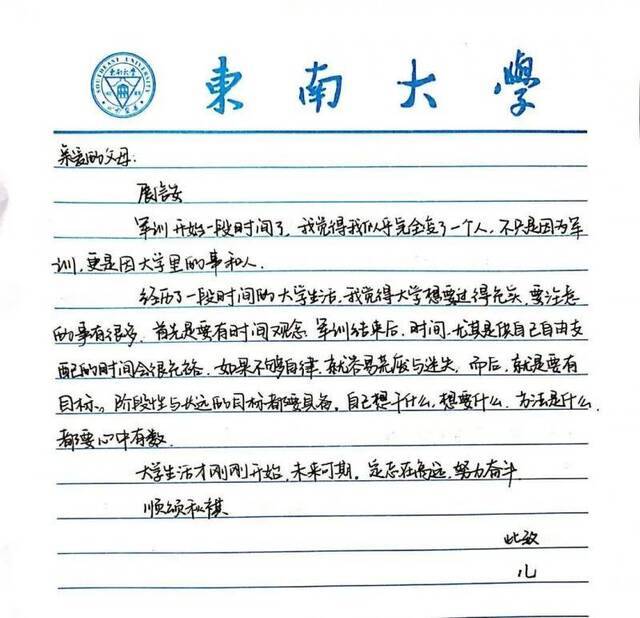 SOUTHEAST UNIVERSITY
東南大學
亲爱的父母：
展信安
军训开始一段时间了，我觉得我似乎完全变了一个人，不只是因为军
训，更是因大学里的事和人。
经历了一段时间的大学生活，我觉得大学想要过得充实，要注意
的事有很多。首先是要有时间观念。军训结束后，时间，尤其是供自己自由支
配的时间会很充裕，如果不够自律，就容易荒废与迷失。而后，就是要有
目标。阶段性与长远的目标都要具备。自己想干什么，想要什么，方法是什么，
都要心中有数。
大学生活才刚刚开始，未来可期。定志在高远，努力奋斗
顺颂秋祺
此致
儿